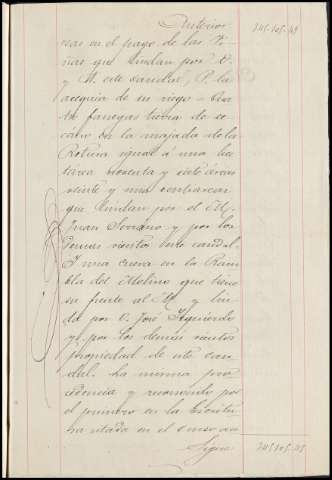 Anterior 245.105.45
nas en el pago de las
nas que lindan por O.
y M. este caudal, P. la
acequia de su riego = Cua
tro fanegas tierra de se
cano en la majada de la
Rotura igual á una hec
tárea y siete áreas
veinte y una centiareas
que lindan por el M.
Juan Soriano y por los
demas vientos este caudal.
Y una cueva en la Ram
bla del Molino que tiene
su frente al M. y lin
da por O. José Izquierdo
y por los demás vientos
propiedad de este cau
dal. La misma pro
cedencia y reconocido por
el primero en la Escritu
ra citada en el
Sigue 245.105.45